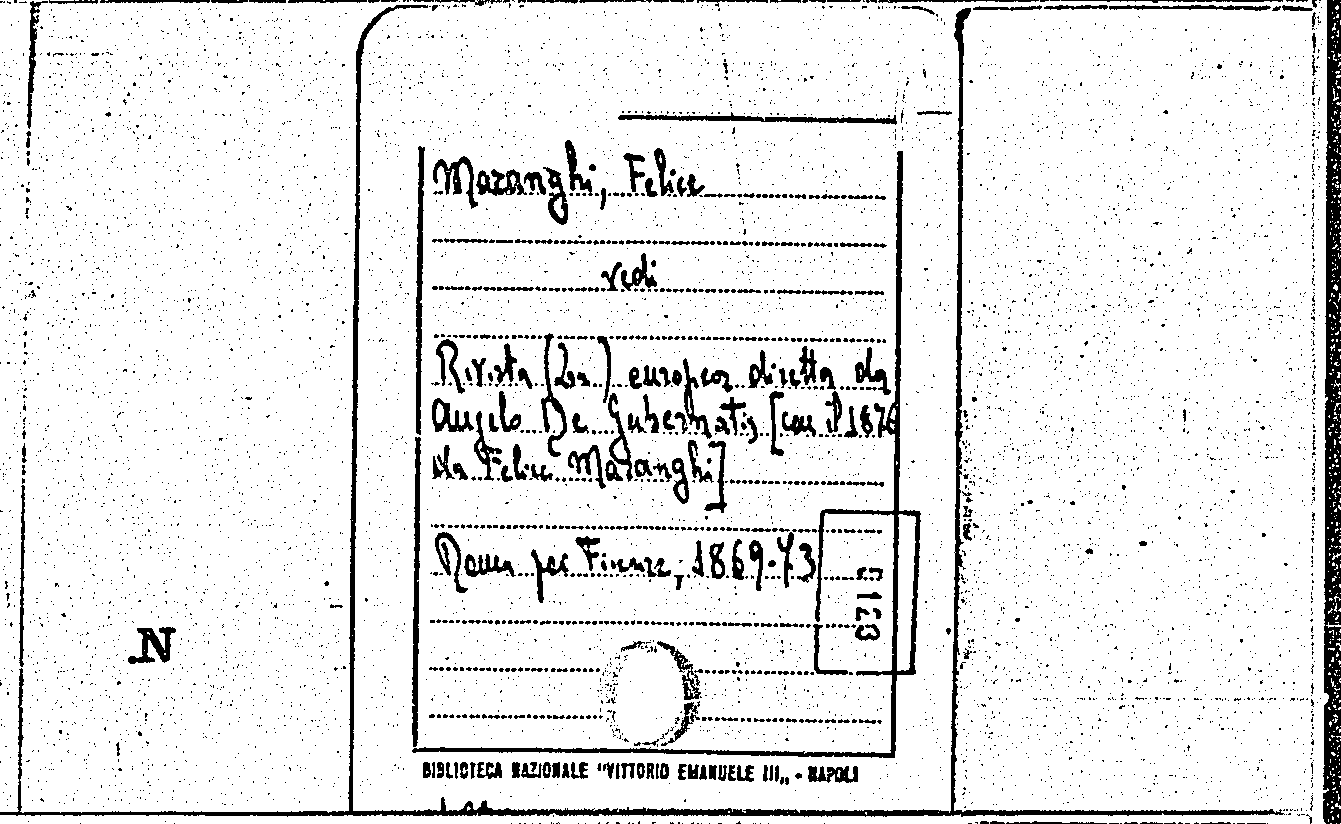 Maranghi, Felice
vedi
Rivista (La) europea diretta da
Angelo De Gubernatis, [con il 1876
da Felice Maranghi]
Roma per Firenze, 1869-73
0123
.N
BIBLIOTECA NAZIONALE "VITTORIO EMANUELE III„ - NAPOLI